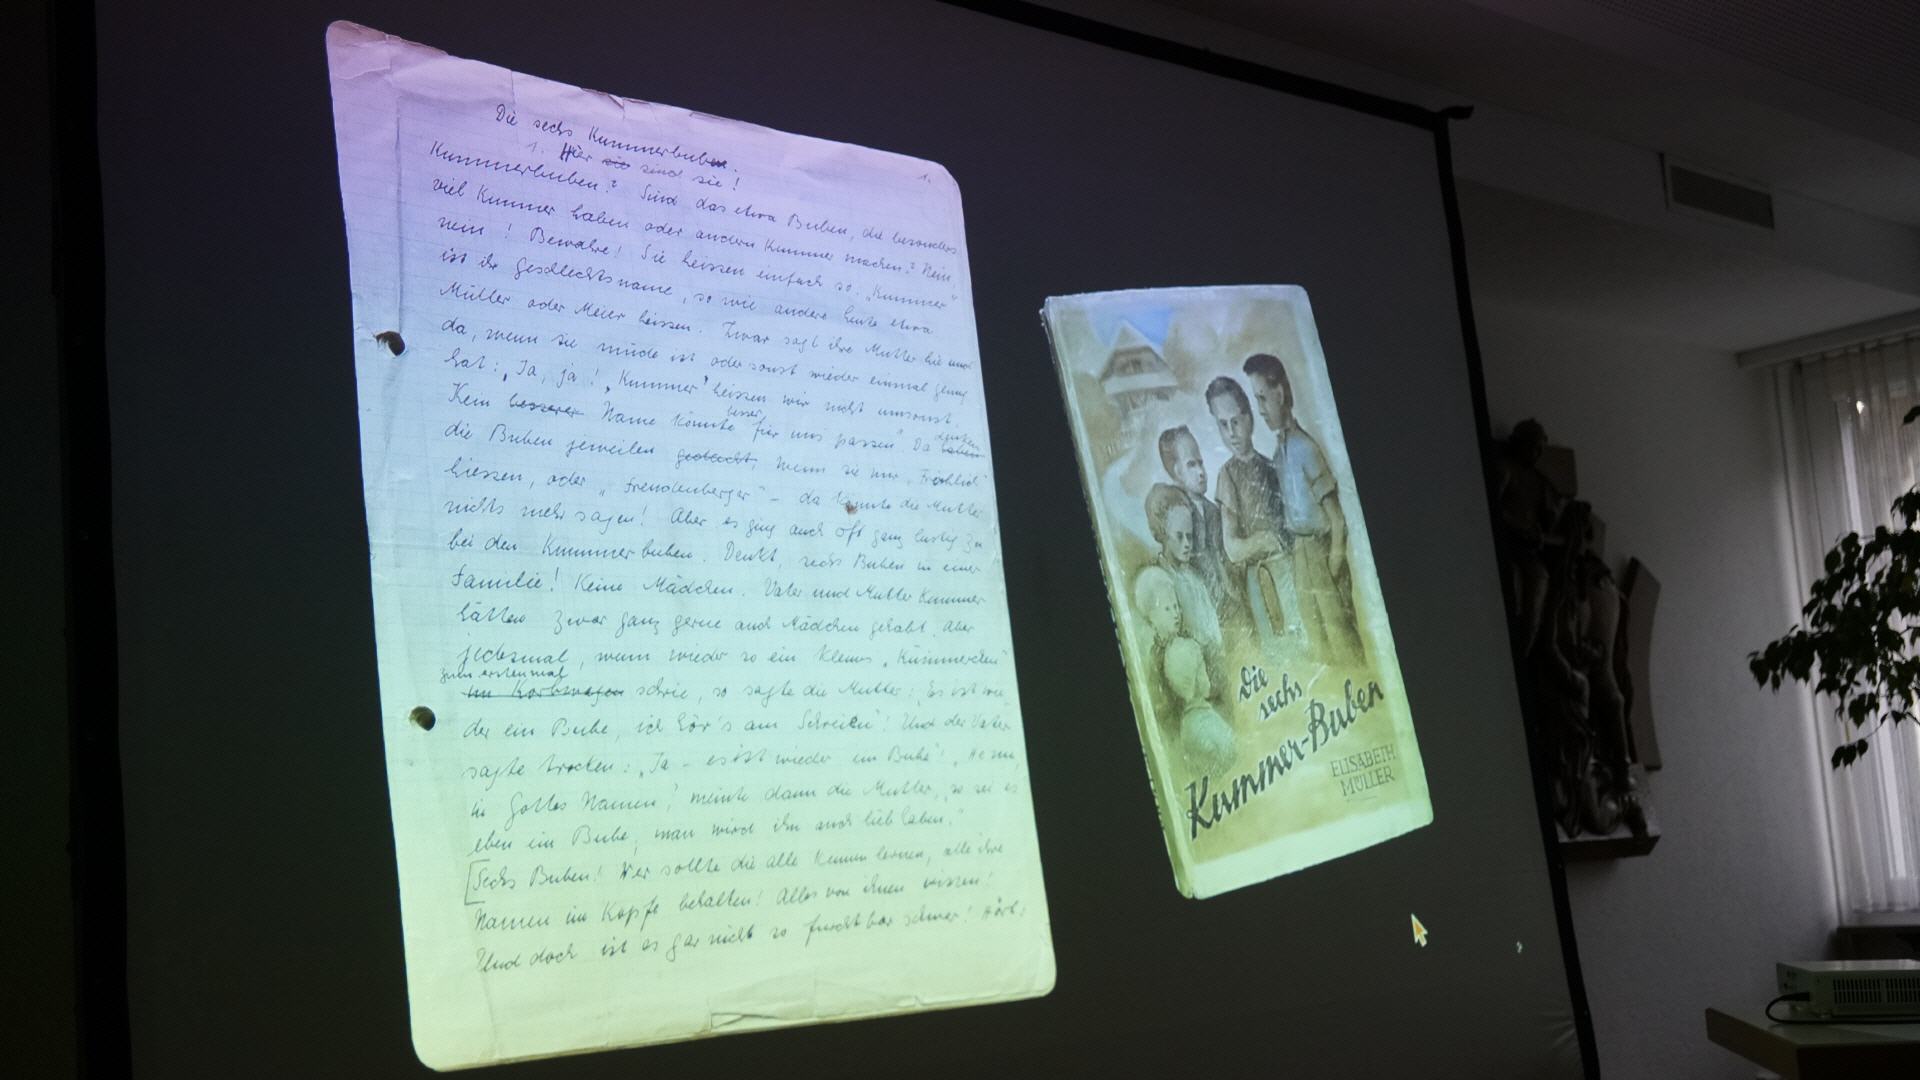 1.
Die sechs Kummerbuben.
1. Hier sie sind sie!
Kummerbuben? Sind das etwa Buben, die besonders
viel Kummer haben oder andern Kummer machen? Nein,
nein! Bewahre! Sie heissen einfach so. „Kummer“
ist ihr Geschlechtsname, so wie andere Leute etwa
Müller oder Meier heissen. Zwar sagt ihre Mutter hie und
da, wenn sie müde ist oder sonst wieder einmal genug
hat: „Ja, ja! „Kummer“ heissen wir nicht umsonst.
Kein besserer Name könnte besser für uns passen“. Da denken
die Buben jeweilen gedacht, wenn sie nur „Fröhlich“
hiessen, oder „Freudenberger“ – da könnte die Mutter
nichts mehr sagen! Aber es ging auch oft ganz lustig zu
bei den Kummerbuben. Denkt, sechs Buben in einer
Familie! Keine Mädchen. Vater und Mutter Kummer
hätten zwar ganz gerne auch Mädchen gehabt. Aber
jedesmal, wenn wieder so ein kleines „Kümmerchen“
zum erstenmal
im Korbwagen schrie, so sagte die Mutter: „Es ist wie-
der ein Bube, ich hör's am Schreien“! Und der Vater
sagte trocken: „Ja – es ist wieder ein Bube“! „He nu,
in Gottes Namen“, meinte dann die Mutter, „so sei es
eben ein Bube, man wird ihn auch lieb haben.“
[Sechs Buben! Wer sollte die alle kennen lernen, alle ihre
Namen im Kopfe behalten! Alles von ihnen wissen!
Und doch ist es gar nicht so furchtbar schwer! Hört:
Die
sechs
Kummer-Buben
ELISABETH
MÜLLER